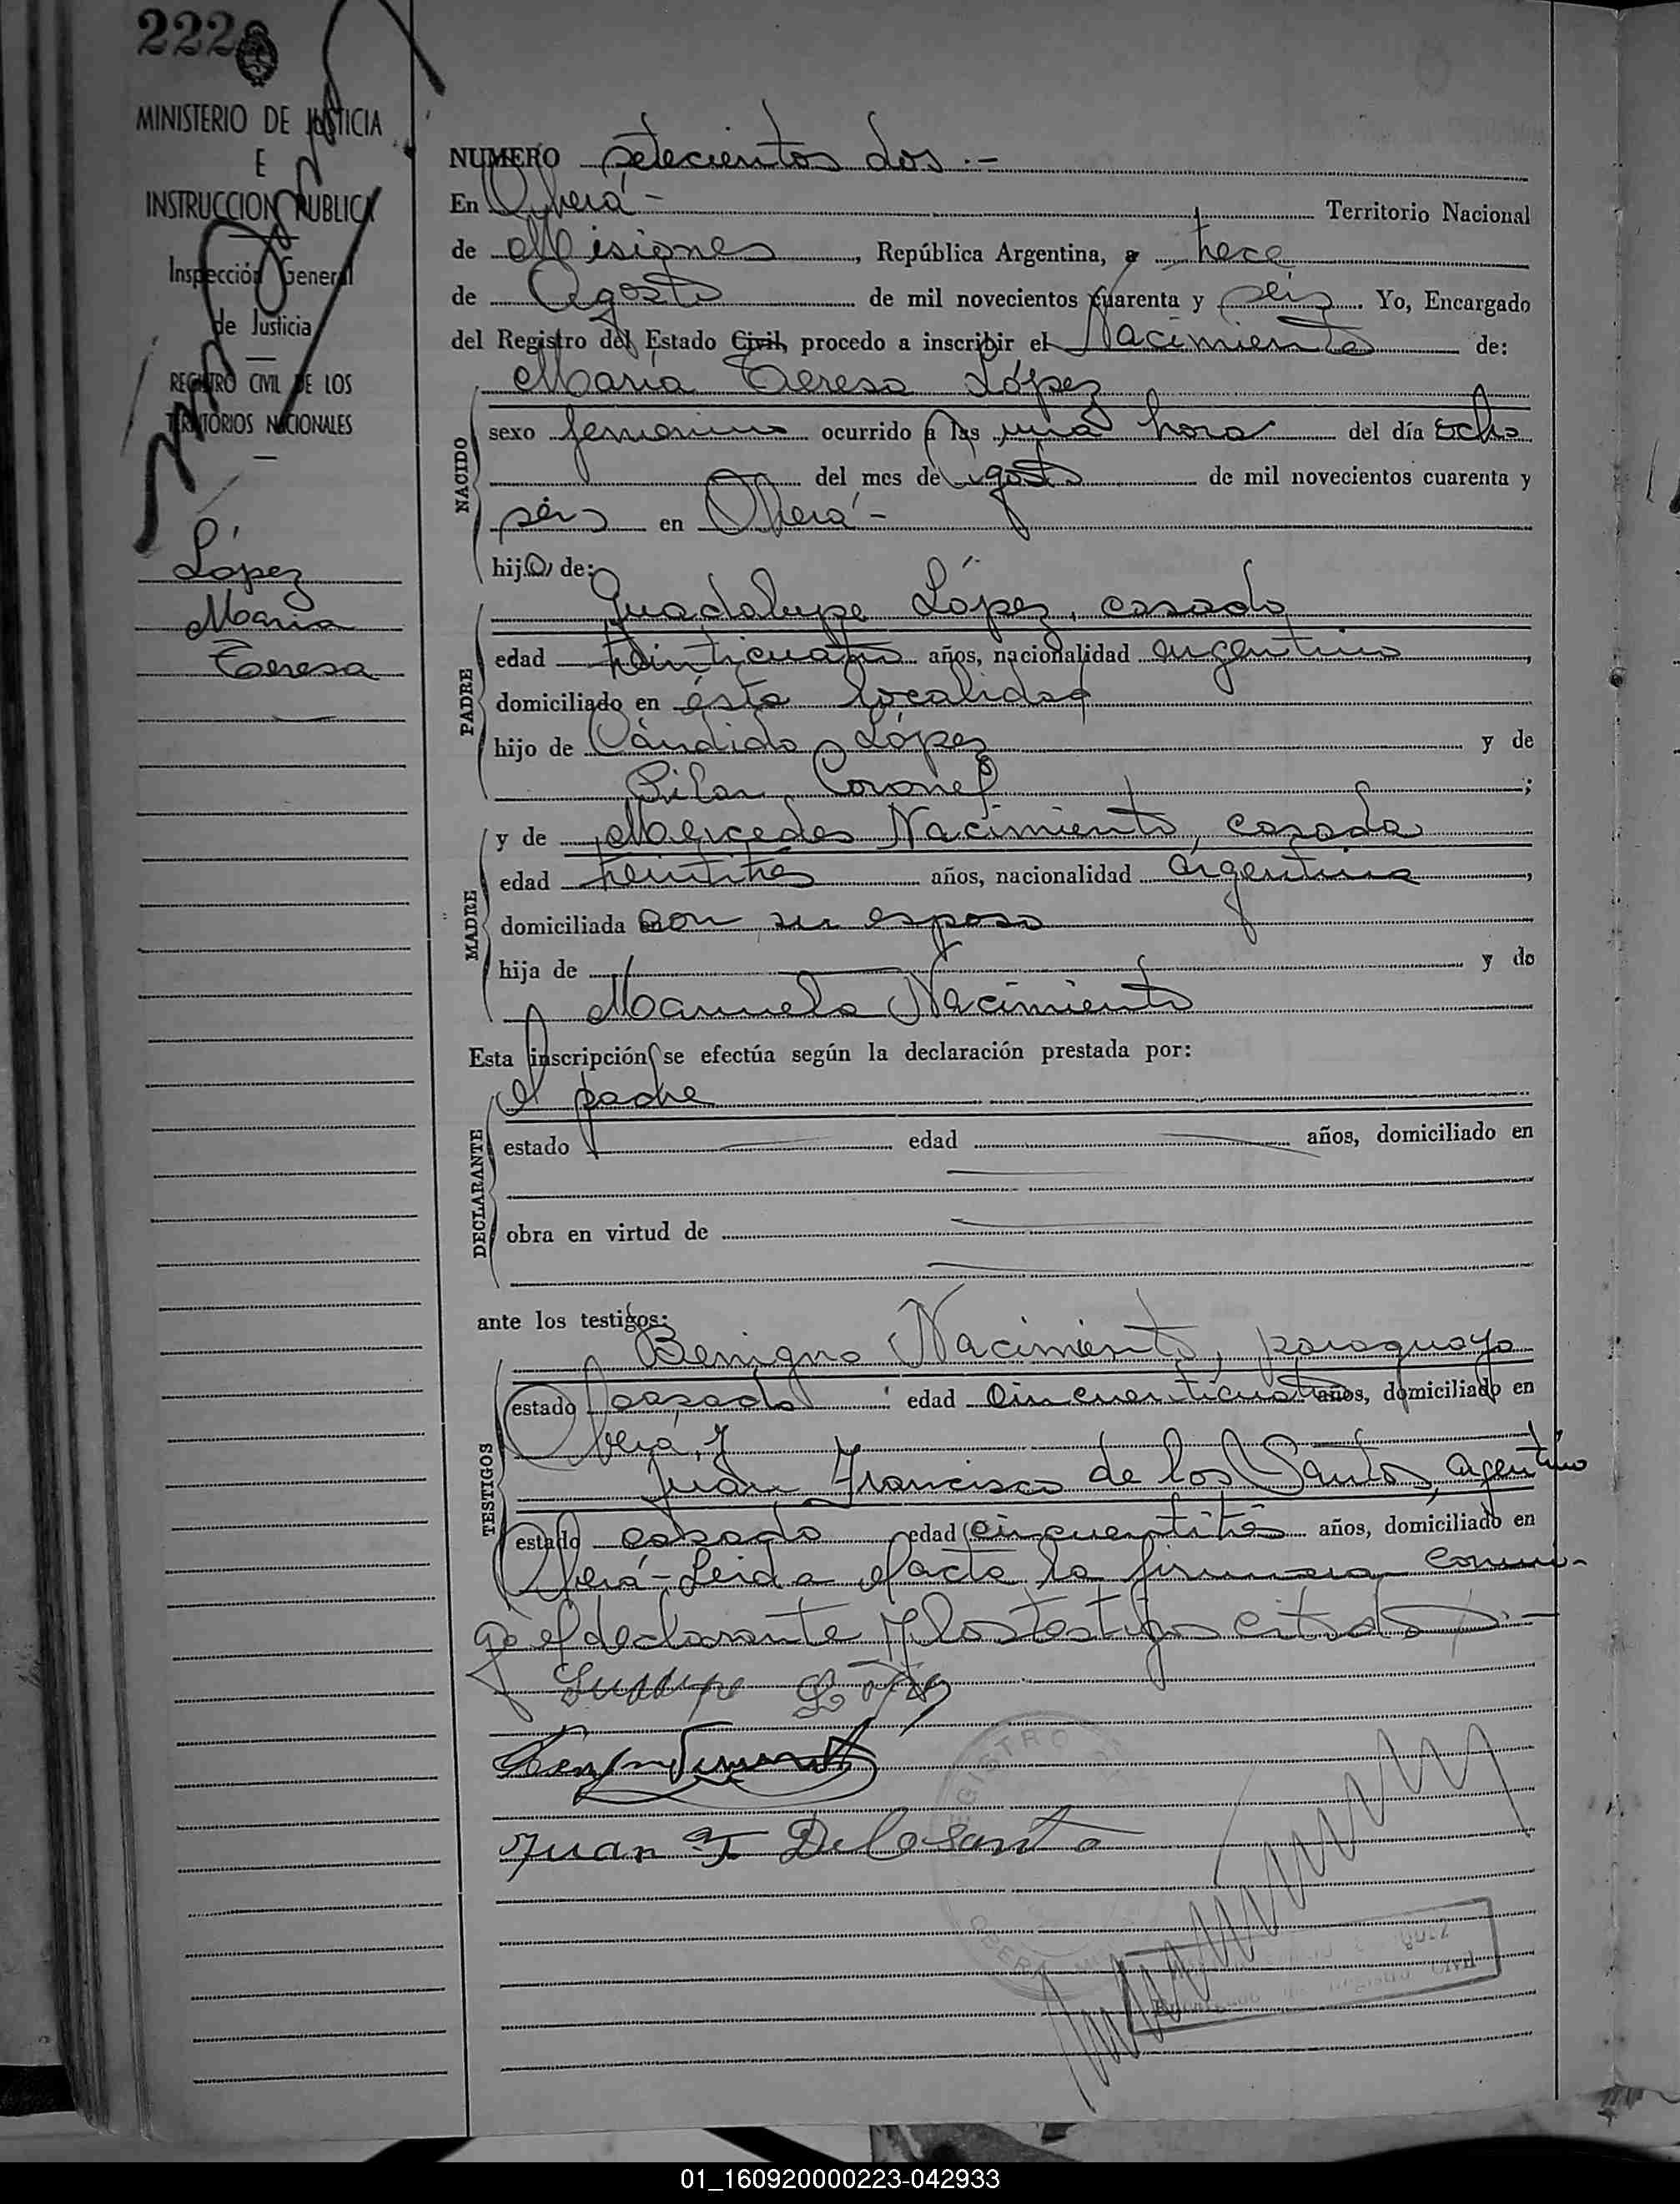 222
MINISTERIO DE JUSTICIA
E
INSTRUCCION PUBLICA
Inspección General
de Justicia
REGISTRO CIVIL DE LOS
TERRITORIOS NACIONALES
López
Maria
Teresa
NUMERO setecientos dos.-
En Oberá- Territorio Nacional
de Misiones, República Argentina, a trece
de Agosto de mil novecientos cuarenta y seis. Yo, Encargado
del Registro del Estado Civil, procedo a inscribir el Nacimiento de:
NACIDO
María Teresa López
sexo femenino ocurrido a las una hora del día ocho
del mes de Agosto de mil novecientos cuarenta y
seis en Oberá-
hija de:
PADRE
Guadalupe López, casado
edad veinticuatro años, nacionalidad argentino,
domiciliado en ésta localidad
hijo de Cándido López y de
Pilar Coronel;
MADRE
y de Mercedes Nacimiento, casada
edad veintitres años, nacionalidad argentina,
domiciliada con su esposo
hija de y de
Manuela Nacimiento
Esta inscripción se efectúa según la declaración prestada por:
DECLARANTE
el padre
estado edad años, domiciliado en
obra en virtud de
ante los testigos:
TESTIGOS
Benigno Nacimiento, paraguayo
estado casado edad cincuenticuatro años, domiciliado en
Oberá, y
Juan Francisco de los Santos, argentino
estado casado edad cincuentitrés años, domiciliado en
Oberá- Leida el acta la firmaron conmi-
go el declarante y los testigos citados.-
López
Juan F De los Santo
REGISTRO
OBERA
Encargado del Registro Civil
01_160920000223-042933